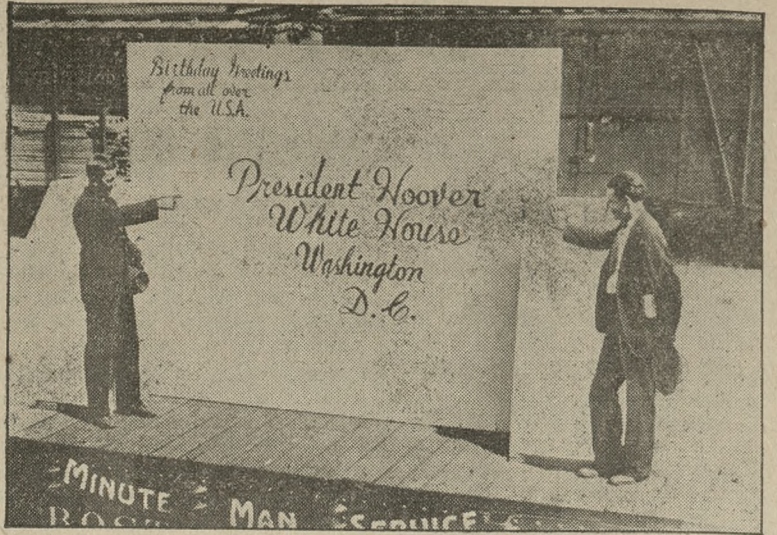 Birthday Greetings
from all over
the U.S.A.
President Hoover
White House
Washington
D. C.
MINUTE MAN SERVICE